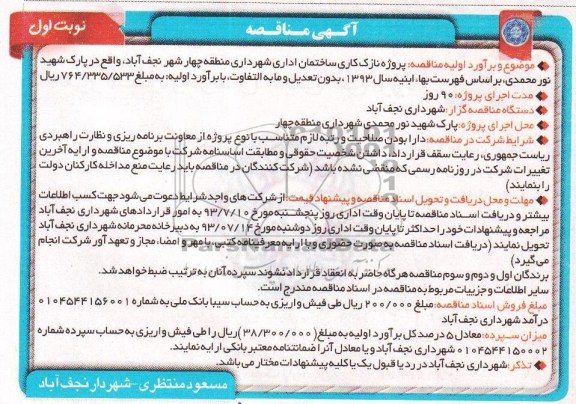 آگهی مناقصه
نوبت اول
موضوع و برآورد اولیه مناقصه: پروژه نازک کاری ساختمان اداری شهرداری منطقه چهار شهر نجف آباد، واقع در پارک شهید
نور محمدی، بر اساس فهرست بها، ابنیه سال ۱۳۹۳، بدون تعدیل و ما به التفاوت، با برآورد اولیه: به مبلغ ۷۶۴/۳۳۵/۵۳۳ ریال
مدت اجرای پروژه: ۹۰ روز
دستگاه مناقصه گزار: شهرداری نجف آباد
محل اجرای پروژه: پارک شهید نور محمدی شهرداری منطقه چهار
شرایط شرکت در مناقصه: دارا بودن صلاحیت و رتبه لازم متناسب با نوع پروژه از معاونت برنامه ریزی و نظارت راهبردی
ریاست جمهوری، رعایت سقف قرارداد، داشتن شخصیت حقوقی و مطابقت اساسنامه شرکت با موضوع مناقصه و ارایه آخرین
تغییرات شرکت در روزنامه رسمی که منقضی نشده باشد (شرکت کنندگان در مناقصه باید رعایت منع مداخله کارکنان دولت
را بنمایند)
مهلت و محل دریافت و تحویل اسناد مناقصه و پیشنهاد قیمت: از شرکت های واجد شرایط دعوت می شود جهت کسب اطلاعات
بیشتر و دریافت اسناد مناقصه تا پایان وقت اداری روز پنجشنبه مورخ ۹۳/۷/۱۰ به امور قراردادهای شهرداری نجف آباد
مراجعه و پیشنهادات خود را حداکثر تا پایان وقت اداری روز دوشنبه مورخ ۹۳/۰۷/۱۴ به دبیرخانه محرمانه شهرداری نجف آباد
تحویل نمایند (دریافت اسناد مناقصه به صورت حضوری و با ارایه معرفینامه کتبی، با مهر و امضا، مجاز و تعهد آور شرکت انجام
می گیرد)
برندگان اول و دوم و سوم مناقصه هرگاه حاضر به انعقاد قرارداد نشوند سپرده آنان به ترتیب ضبط خواهد شد.
سایر اطلاعات و جزییات مربوط به مناقصه در اسناد مناقصه مندرج است.
مبلغ فروش اسناد مناقصه: مبلغ ۲۰۰/۰۰۰ ریال طی فیش واریزی به حساب سیبا بانک ملی به شماره ۰۱۰۴۵۴۴۱۵۶۰۰۱
درآمد شهرداری نجف آباد
میزان سپرده: معادل ۵ درصد کل برآورد اولیه به مبلغ (۳۸/۳۰۰/۰۰۰) ریال را طی فیش واریزی به حساب سپرده شماره
۰۱۰۴۵۴۴۱۵۰۰۰۲ شهرداری نجف آباد و یا معادل آن را ضمانتنامه معتبر بانکی ارایه نمایند.
تذکر: شهرداری نجف آباد در رد یا قبول یک یا کلیه پیشنهادات مختار می باشد.
مسعود منتظری - شهردار نجف آباد